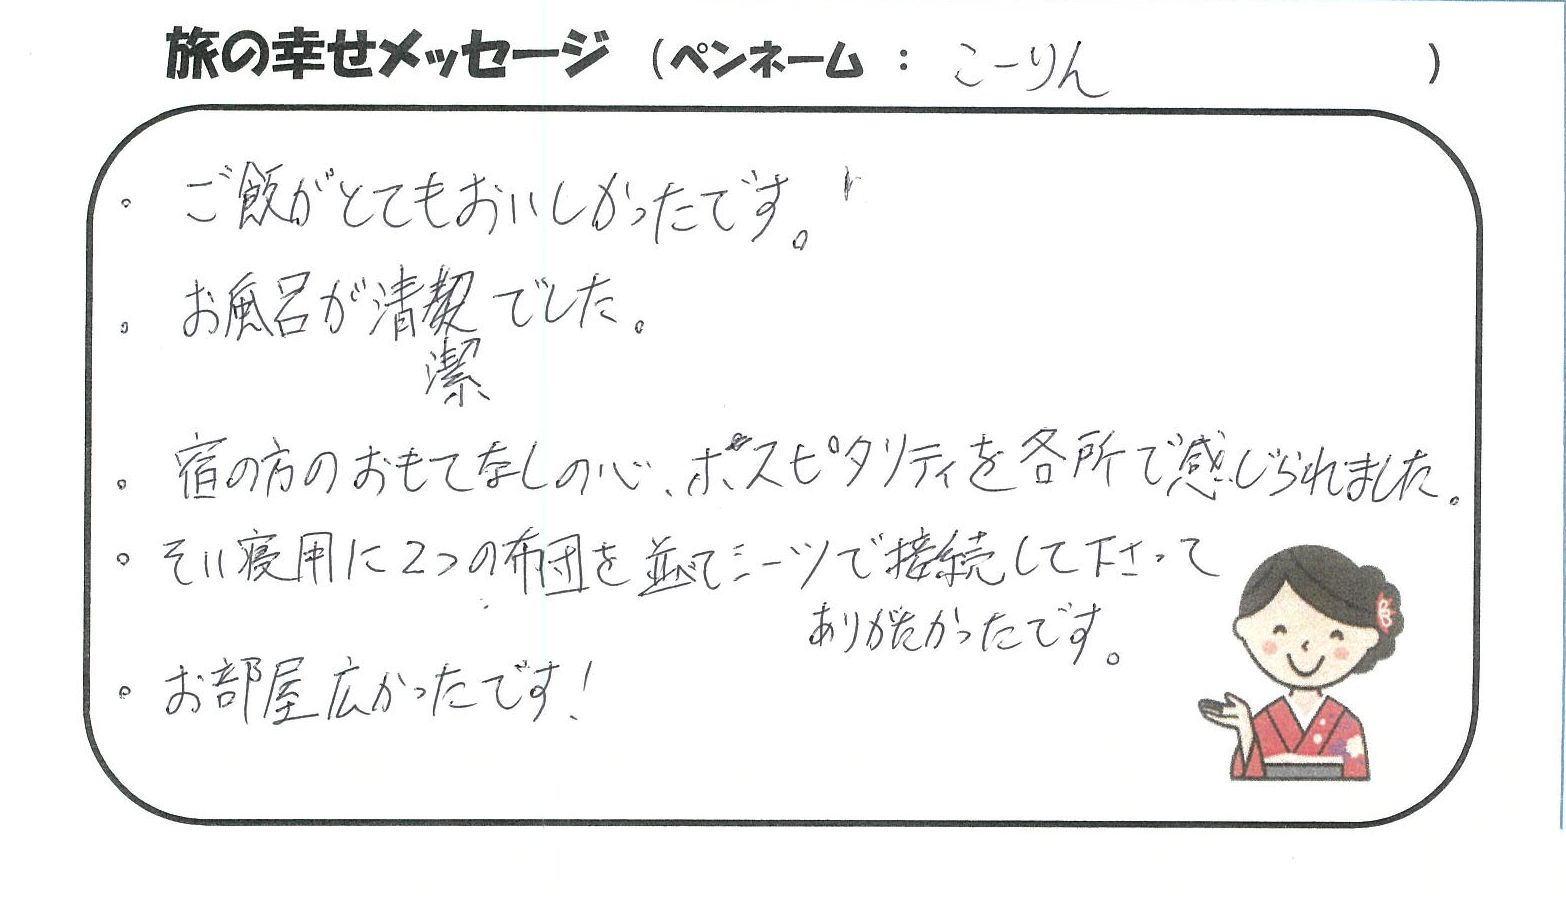 旅の幸せメッセージ (ペンネーム : こーりん )
・ ご飯がとてもおいしかったです。
・ お風呂が清潔でした。
潔
・ 宿の方のおもてなしの心、ホスピタリティを各所で感じられました。
・ そい寝用に2つの布団を並べてシーツで接続して下さって
ありがたかったです。
・ お部屋広かったです!